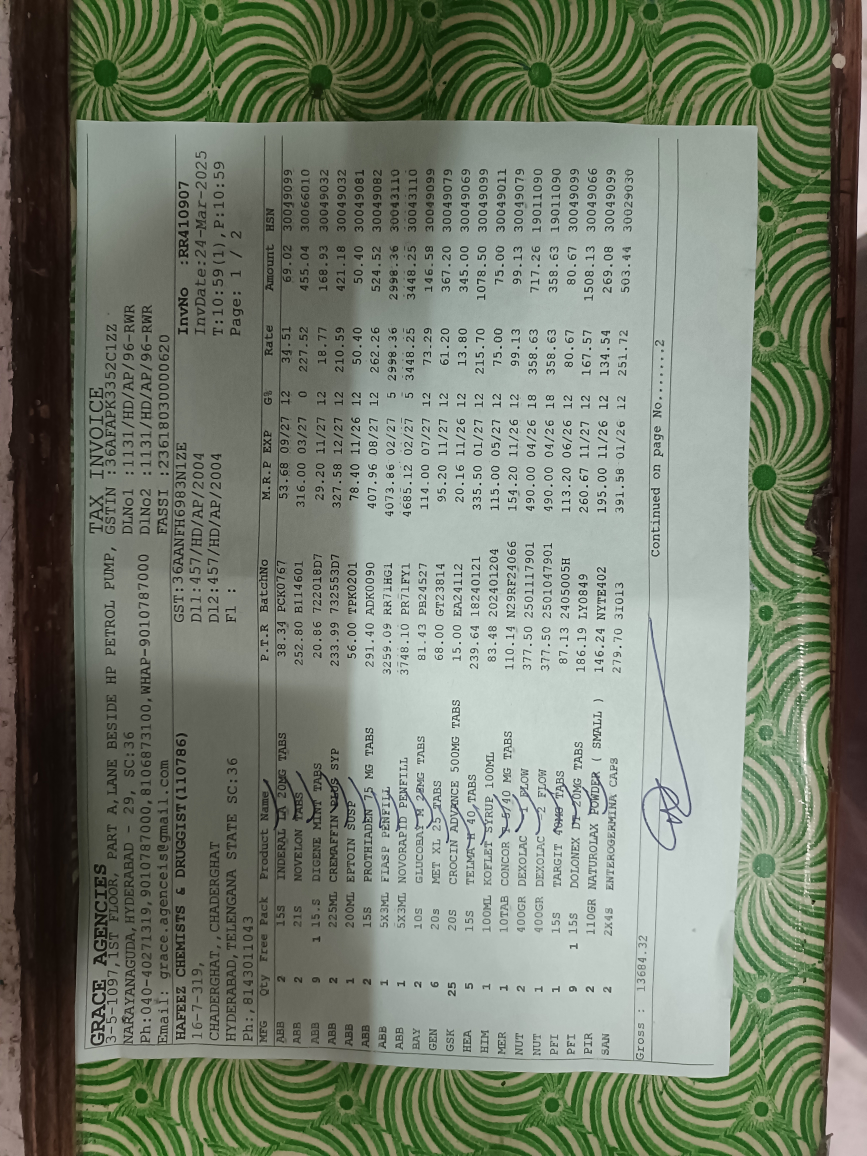 GRACE AGENCIES TAX INVOICE
3-5-1097,1ST FLOOR, PART A,LANE BESIDE HP PETROL PUMP, GSTIN :36AFAPK3352C1ZZ
NARAYANAGUDA,HYDERABAD - 29, SC:36 DLNo1 :1131/HD/AP/96-RWR
Ph:040-40271319,9010787000,8106873100,WHAP-9010787000 DlNo2 :1131/HD/AP/96-RWR
Email: grace.agencies@gmail.com FASSI :23618030000620
HAFEEZ CHEMISTS & DRUGGIST(110786) GST:36AANFH6983N1ZE InvNo :RR410907
16-7-319, D11:457/HD/AP/2004 InvDate:24-Mar-2025
CHADERGHAT,,CHADERGHAT D12:457/HD/AP/2004 T:10:59(1),P:10:59
HYDERABAD,TELENGANA STATE SC:36 Fl : Page: 1 / 2
Ph:,8143011043
MFG Qty Free Pack Product Name P.T.R BatchNo M.R.P EXP G% Rate Amount HSN
ABB 2 15S INDERAL LA 20MG TABS 38.34 PCK0767 53.68 09/27 12 34.51 69.02 30049099
ABB 2 21S NOVELON TABS 252.80 B114601 316.00 03/27 0 227.52 455.04 30066010
ABB 9 1 15.S DIGENE MINT TABS 20.86 722018D7 29.20 11/27 12 18.77 168.93 30049032
ABB 2 225ML CREMAFFIN PLUS SYP 233.99 732553D7 327.58 12/27 12 210.59 421.18 30049032
ABB 1 200ML EPTOIN SUSP 56.00 TPK0201 78.40 11/26 12 50.40 50.40 30049081
ABB 2 15S PROTHIADEN 75 MG TABS 291.40 ADK0090 407.96 08/27 12 262.26 524.52 30049082
ABB 1 5X3ML FIASP PENFILL 3259.09 RR71HG1 4073.86 02/27 5 2998.36 2998.36 30043110
ABB 1 5X3ML NOVORAPID PENFILL 3748.10 PR71FY1 4685.12 02/27 5 3448.25 3448.25 30043110
BAY 2 10S GLUCOBAY M 25MG TABS 81.43 PB24527 114.00 07/27 12 73.29 146.58 30049099
GEN 6 20s MET XL 25 TABS 68.00 GT23814 95.20 11/27 12 61.20 367.20 30049079
GSK 25 20S CROCIN ADVANCE 500MG TABS 15.00 EA24112 20.16 11/26 12 13.80 345.00 30049069
HEA 5 15S TELMA H 40 TABS 239.64 18240121 335.50 01/27 12 215.70 1078.50 30049099
HIM 1 100ML KOFLET SYRUP 100ML 83.48 202401204 115.00 05/27 12 75.00 75.00 30049011
MER 1 10TAB CONCOR T 5/40 MG TABS 110.14 N29RF24066 154.20 11/26 12 99.13 99.13 30049079
NUT 2 400GR DEXOLAC 1 FLOW 377.50 2501117901 490.00 04/26 18 358.63 717.26 19011090
NUT 1 400GR DEXOLAC 2 FLOW 377.50 2501047901 490.00 04/26 18 358.63 358.63 19011090
PFI 1 15S TARGIT 40MG TABS 87.13 2405005H 113.20 06/26 12 80.67 80.67 30049099
PFI 9 1 15S DOLONEX DT 20MG TABS 186.19 LY0849 260.67 11/27 12 167.57 1508.13 30049066
PIR 2 110GR NATUROLAX POWDER ( SMALL ) 146.24 NYTE402 195.00 11/26 12 134.54 269.08 30049099
SAN 2 2X4S ENTEROGERMINA CAPS 279.70 3I013 391.58 01/26 12 251.72 503.44 30029030
Gross : 13684.32 Continued on page No.......2